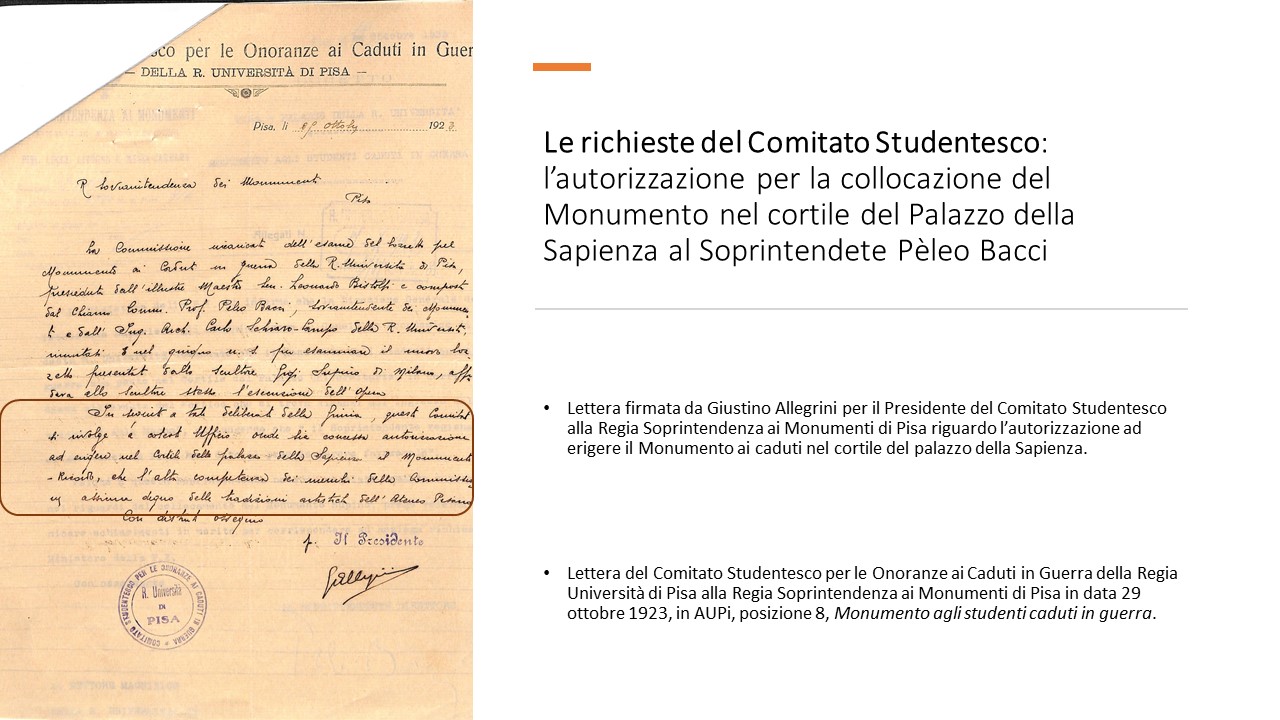 sco per le Onoranze ai Caduti in Guer
— DELLA R. UNIVERSITÀ DI PISA —
Pisa, li 29 ottobre 1923
R Sovraintendenza dei Monumenti
Pisa
La Commissione incaricata dell'esame del bozzetto pel
Monumento ai Caduti in guerra della R. Università di Pisa,
presieduta dall'illustre Maestro Sen. Leonardo Bistolfi e composta
dal Chiamo Comm. Prof. Pèleo Bacci, Sovraintendente dei Monumen
ti e dall' Ing. Arch. Carlo della R. Università,
nel giugno u. s. per esaminare il nuovo boz
zetto presentato dallo scultore Gigi Supino di Milano, affi
dava allo scultore stesso l'esecuzione dell'Opera
In a tale deliberato della Giuria, questo Comitato
si rivolge a cotesto Ufficio onde sia concessa autorizzazione
ad erigere nel Cortile della palazzo della Sapienza il Monumento
- Ricordo, che l'alta competenza dei membri della Commissione
degno delle tradizioni artistiche dell'Ateneo Pisano
Con distinto ossequio
p. Il Presidente
GAllegrini
COMITATO STUDENTESCO PER LE ONORANZE AI CADUTI IN GUERRA
R. Università
DI
PISA
Le richieste del Comitato Studentesco:
l’autorizzazione per la collocazione del
Monumento nel cortile del Palazzo della
Sapienza al Soprintendete Pèleo Bacci
• Lettera firmata da Giustino Allegrini per il Presidente del Comitato Studentesco
alla Regia Soprintendenza ai Monumenti di Pisa riguardo l’autorizzazione ad
erigere il Monumento ai caduti nel cortile del palazzo della Sapienza.
• Lettera del Comitato Studentesco per le Onoranze ai Caduti in Guerra della Regia
Università di Pisa alla Regia Soprintendenza ai Monumenti di Pisa in data 29
ottobre 1923, in AUPi, posizione 8, Monumento agli studenti caduti in guerra.